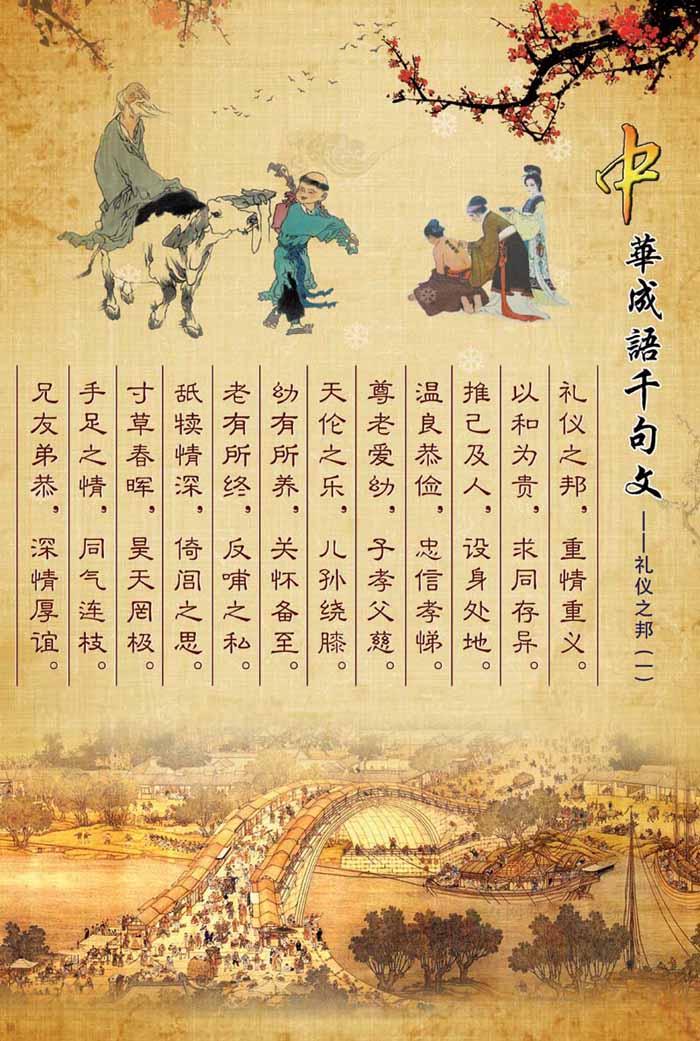 中華成語千句文——礼仪之邦(一)
礼仪之邦，重情重义。
以和为贵，求同存异。
推己及人，设身处地。
温良恭俭，忠信孝悌。
尊老爱幼，子孝父慈。
天伦之乐，儿孙绕膝。
幼有所养，关怀备至。
老有所终，反哺之私。
舐犊情深，倚闾之思。
寸草春晖，昊天罔极。
手足之情，同气连枝。
兄友弟恭，深情厚谊。